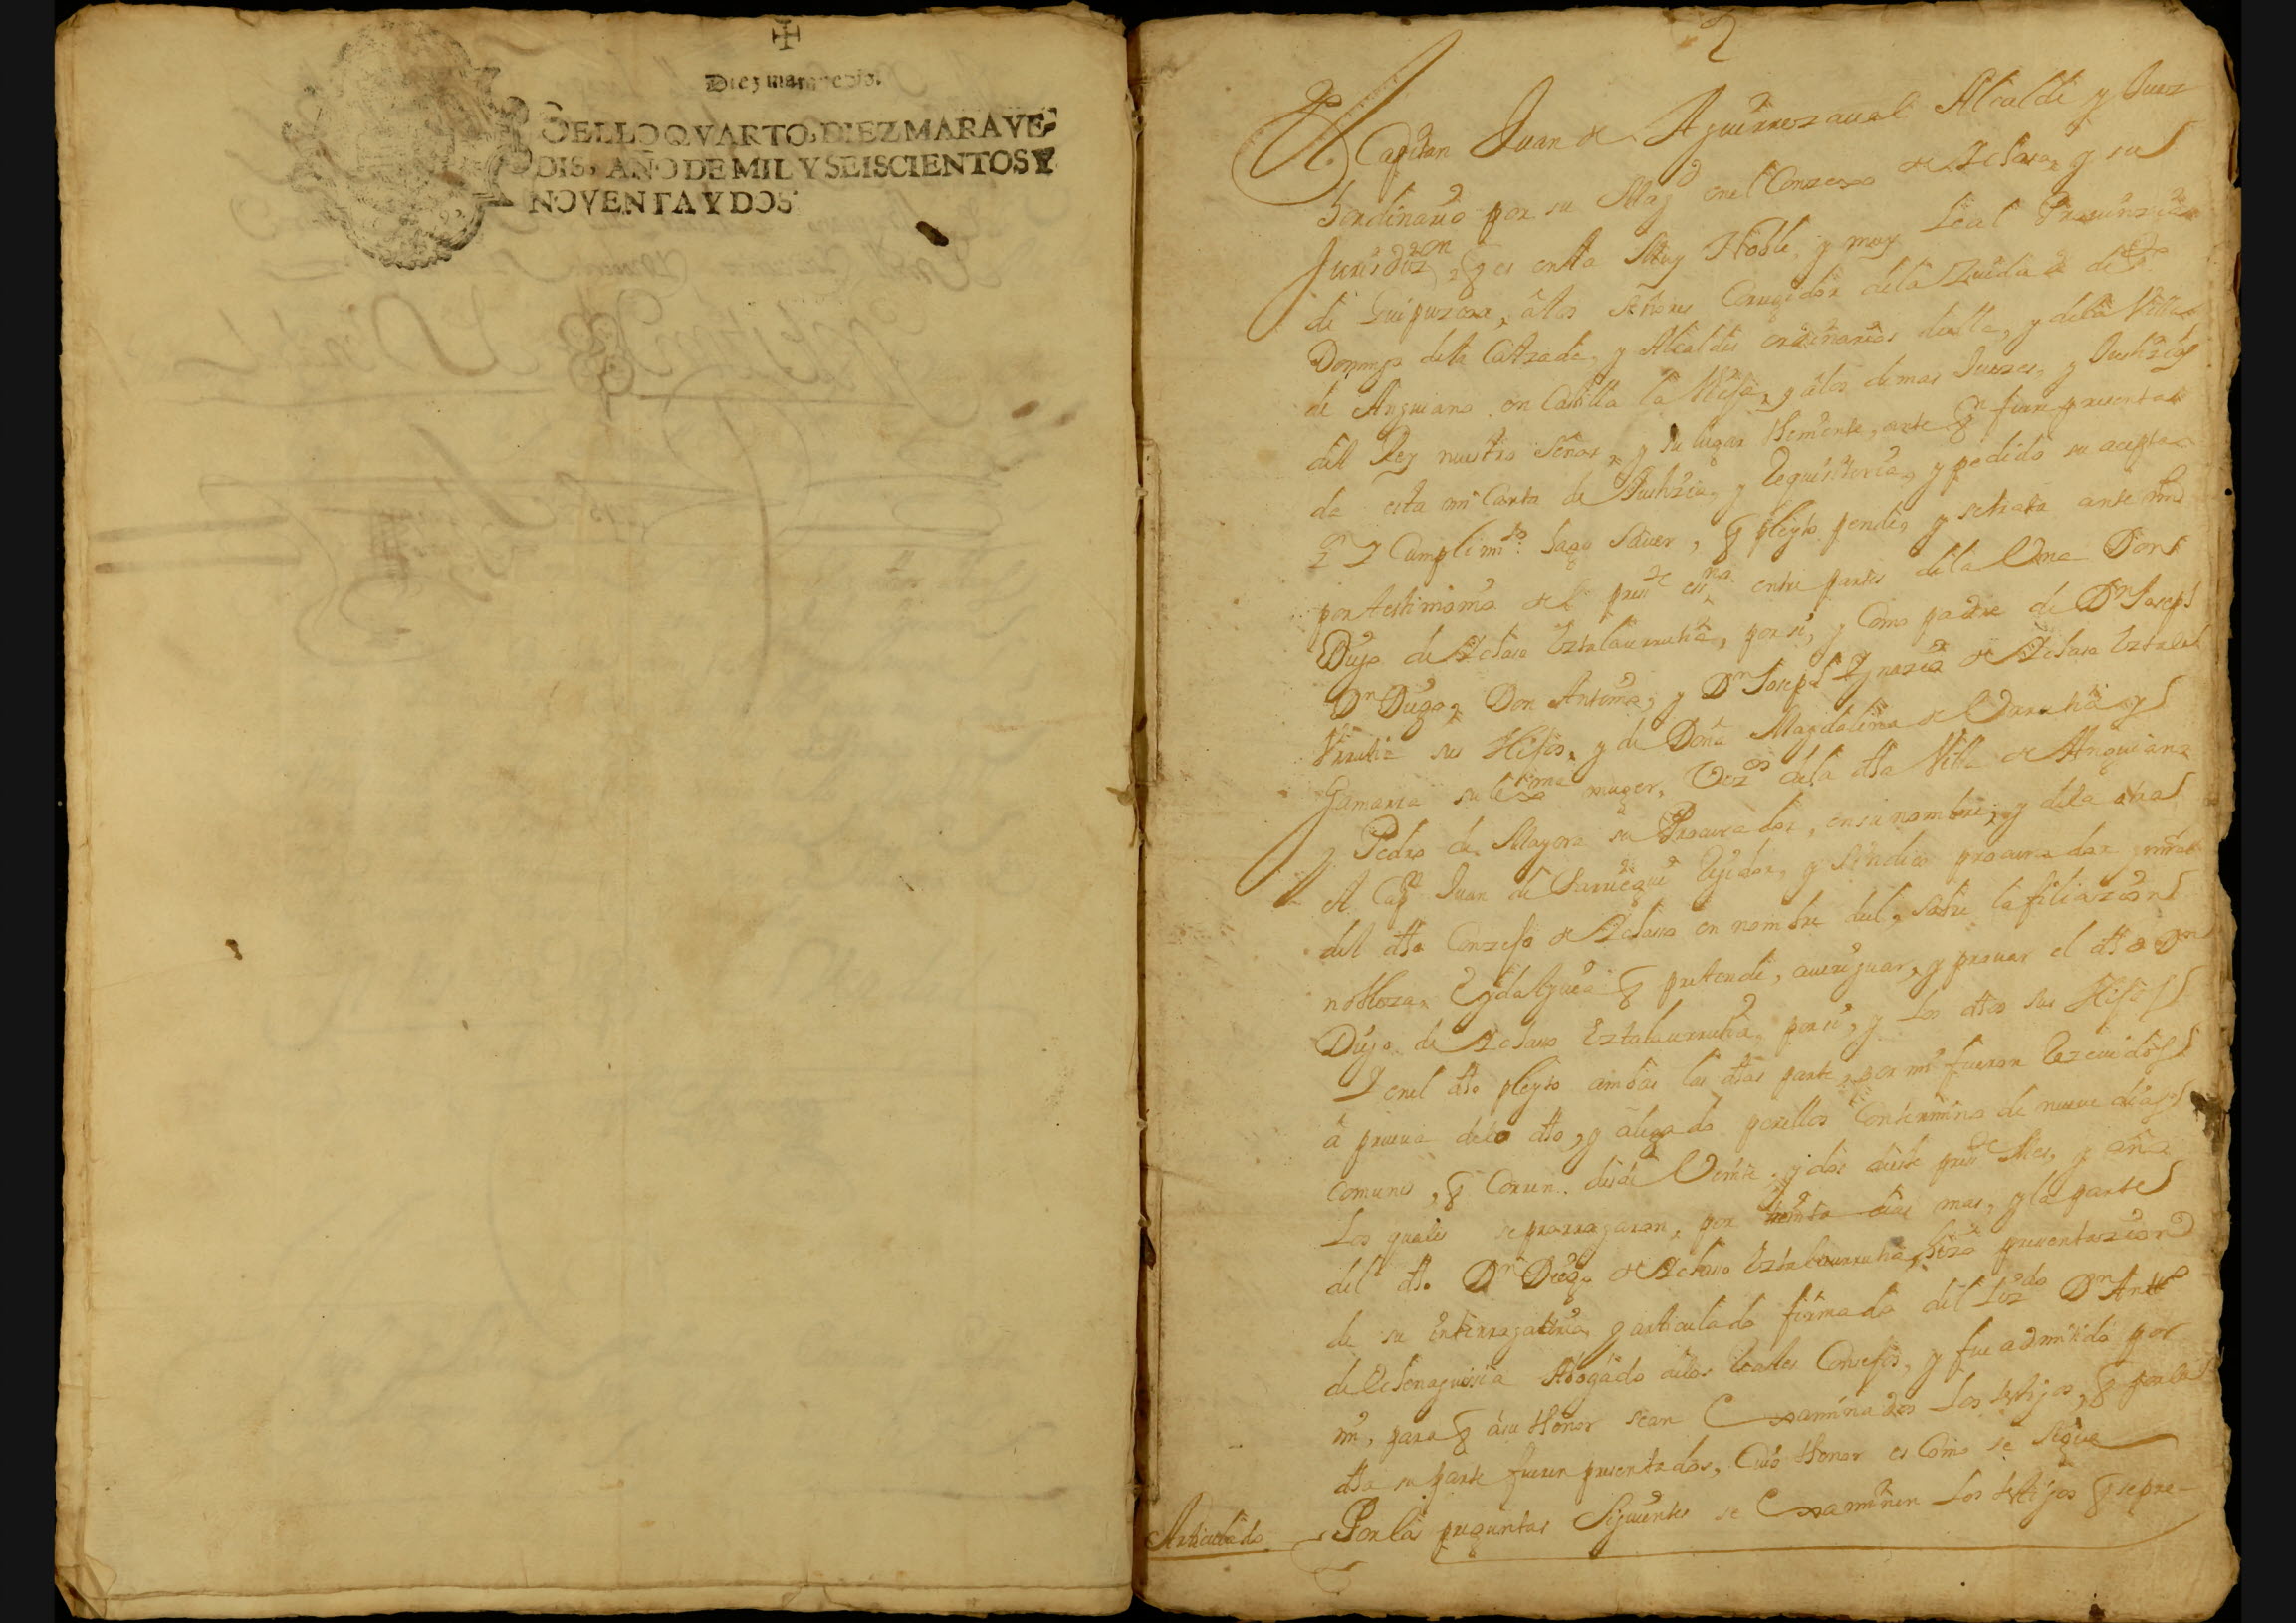 Diez maravedis.
SELLO QVARTO, DIEZ MARAVE-
DIS, AÑO DE MIL Y SEISCIENTOS Y
NOVENTA Y DOS
2
El Capitan Juan de Aguirrezaual Alcalde y Juez
hordinario por su Magd enel Conzexo de Achaso, y su
Jurisdizon, q es enesta Muy Noble, y muy Leal Prouinzia
de Guipuzcoa, â los Señores Corregidor dela Ziudad de sto
Domingo dela Calzada, y Alcaldes ordinarios deella, y dela Villa
de Anguiano en Castilla la Vieja, y âlos demas Juezes, y Justizias
del Rey nuestro Señor, y su lugar theniente, ante qn fuere presentada
da esta mi Carta de Justizia, y Requisitoria, y pedido su acepta-
on Y Cumplimto: hago sauer, q pleyto pende, y se trata ante mi
por testimonio del presente essno entre partes dela Vna Don
Diego de Achaso Yztalaurrutia, por si, y Como padre de Dn Joseph
Dn Diego, Don Antonio, y Dn Joseph Ygnazio de Achaso Yztala
Vrrutia sus Hijos, y de Doña Magdalena de Vrrutia y
Gamarra su lexma muger, Vezos dela dha Villa de Anguiano
y Pedro de Mayora su Procurador, en su nombre; y dela otra
el Capn Juan de Rexidor, y Sindico procurador general
del dho Conzejo de Achaso en nombre deel, sobre la filiazion
nobleza, Ydalguia q pretende, aueriguar, y prouar el dho Dn
Diego de Achaso Yztalaurrutia, por si, y Los dhos sus Hijos
Y enel dho pleyto ambas las dhas partes por mi fueron Rezeuidos
â prueua delo dho, y âlegado por ellos Con termino de nueue dias
comunes, q Corren desde Veinte y dos deeste presente Mes, y año
Los quales se prorrogaron, por treinta dias mas, y la parte
del dho Dn Diego de Achaso Yztalaurrutia, hizo presentazion
de su interrogatorio, y articulado firmado del Lizdo Dn Anto
de Abogado delos Reales Consejos, y fue admitido por
mi, para q â su thenor sean Examinados Los testigos, q por la
dha su parte fueren presentados, Cuio thenor es Como se sigue
Articulado
Por las preguntas Siguientes se Examinen Los testigos q se pre-